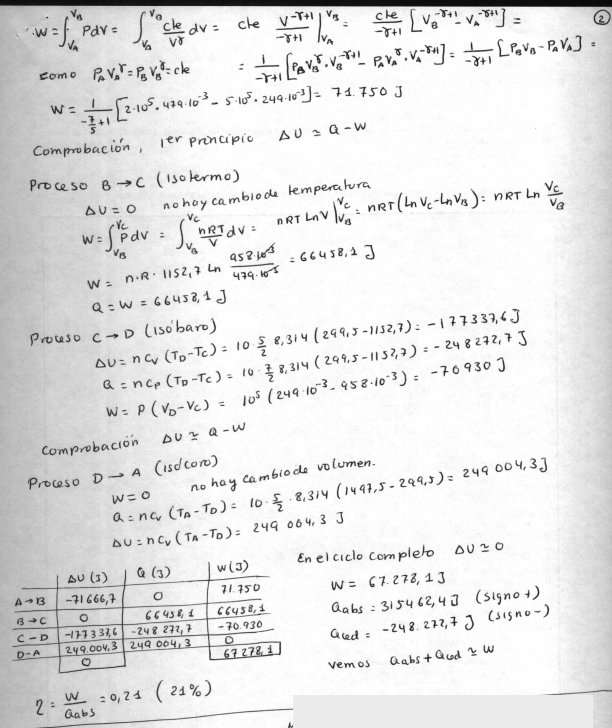 2
W = ∫_{VA}^{VB} P dv = ∫_{VA}^{VB} cte/V^γ dv = cte V^{-γ+1}/(-γ+1) |_{VA}^{VB} = cte/(-γ+1) [V_B^{-γ+1} - V_A^{-γ+1}] =
como P_A V_A^γ = P_B V_B^γ = cte = 1/(-γ+1) [P_B V_B^γ · V_B^{-γ+1} - P_A V_A^γ · V_A^{-γ+1}] = 1/(-γ+1) [P_B V_B - P_A V_A] =
W = 1/(-7/5+1) [2·10^5 · 479·10^-3 - 5·10^5 · 249·10^-3] = 71.750 J
Comprobación, 1er principio ΔU ≃ Q-W
Proceso B → C (isotermo)
ΔU = 0 no hay cambio de temperatura
W = ∫_{VB}^{VC} P dv = ∫_{VB}^{VC} nRT/V dv = nRT Ln V |_{VB}^{VC} = nRT (Ln Vc - Ln VB) = nRT Ln Vc/VB
W = n·R· 1152,7 Ln 958·10^-3/479·10^-3 = 66458,1 J
Q = W = 66458,1 J
Proceso C → D (isóbaro)
ΔU = n Cv (TD - Tc) = 10 · 5/2 8,314 (299,5 - 1152,7) = -177337,6 J
Q = n Cp (TD - Tc) = 10 · 7/2 8,314 (299,5 - 1152,7) = -248272,7 J
W = P (VD - Vc) = 10^5 (249·10^-3 - 958·10^-3) = -70930 J
Comprobación ΔU ≃ Q-W
Proceso D → A (isócoro)
W = 0 no hay cambio de volumen.
Q = n Cv (TA - TD) = 10 · 5/2 · 8,314 (1497,5 - 299,5) = 249 004,3 J
ΔU = n Cv (TA - TD) = 249 004,3 J
ΔU (J) Q (J) W (J)
A → B -71666,7 0 71.750
B → C 0 66458,1 66458,1
C - D -177337,6 -248272,7 -70.930
D-A 249.004,3 249004,3 0
0 67278,1
En el ciclo completo ΔU ≃ 0
W = 67.278,1 J
Qabs = 315462,4 J (signo +)
Qced = -248.272,7 J (signo -)
vemos Qabs + Qced ≃ W
η = W/Qabs = 0,21 (21%)